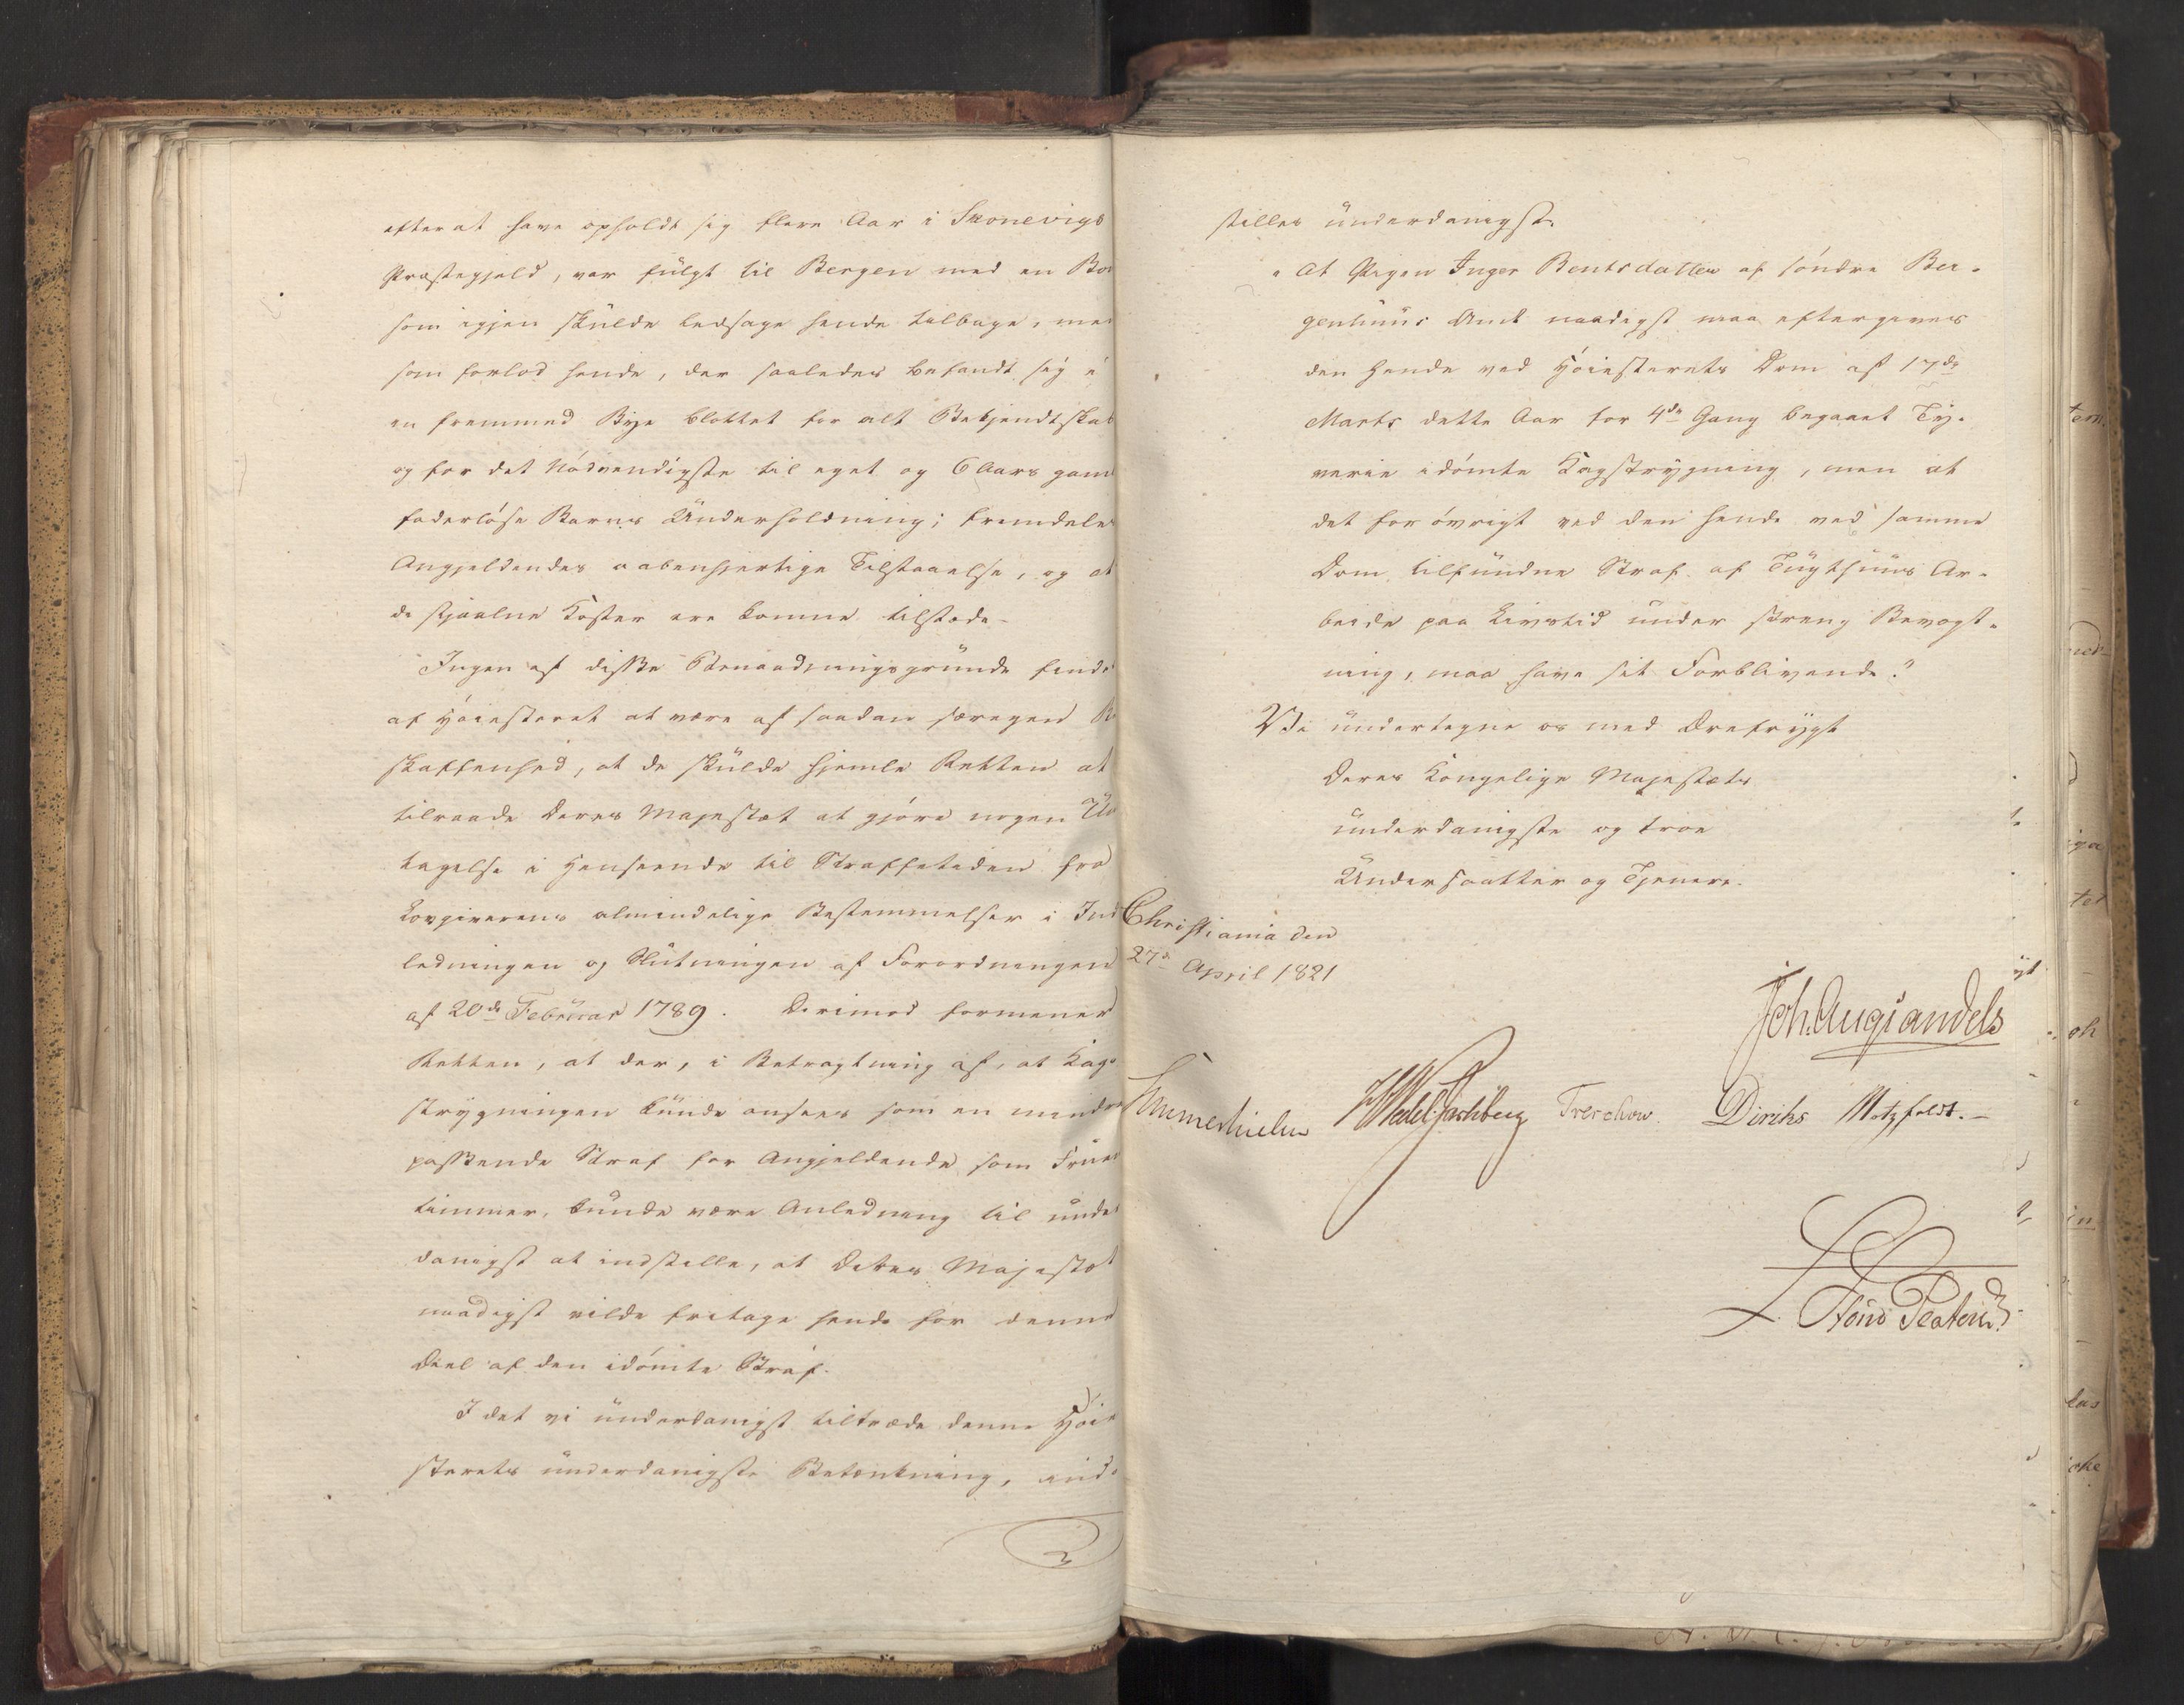 efterat have opholdt sig flere Aar i Skonevigs
Præstegjeld, var fulgt til Bergen med en
som igjen skulde ledsage hende tilbage, men
som forlod hende, der saaledes befandt sig i
en fremmed Bye blottet for alt Bekjendtskab
og for det Nödvendigste til eget og 6 Aars gam
faderlöse Barns Underholdning; fremdeles
Angjeldendes aabenhjertige Tilstaaelse, og at
de stjaalne Koster ere komne tilstæde.
Ingen af disse Benaadningsgrunde findes
af Höiesteret at være af saadan særegen Be
skaffenhed, at de skulde hjemle Retten at
tilraade Deres Majestæt at gjöre nogen Und
tagelse i Henseende til Straffetiden fra
Lovgiverens almindelige Bestemmelser i Ind
ledningen og Slutningen af Forordningen
af 20de Februar 1789. Derimod formener
Retten, at der, i Betragtning af, at Kag-
strygningen kunde ansees som en mindre
passende Straf for Angjeldende som Fruen
timmer, kunde være Anledning til under
danigst at indstille, at Deres Majestæt
naadigst vilde fritage hende for denne
Deel af den idömte Straf.
I det vi underdanigst tiltræde denne Höie
sterets underdanigste Betænkning, ind-
stilles underdanigst:
"At Pigen Inger Bentsdatter af söndre Ber-
genhuus Amt naadigst maa eftergives
den Hende ved Höiesterets Dom af 17de
Marts dette Aar for 4de Gang begaaet Ty-
verie idömte Kagstrygning, men at
det for övrigt ved den hende ved samme
Dom tilfundne Straf af Tugthuus Ar-
beide paa Livstid under streng Bevogt-
ning, maa have sit Forblivende."
Vi undertegne os med Ærefrygt
Deres Kongelige Majestæts
underdanigste og troe
Undersaatter og Tjenere.
Christiania den
27de April 1821
Joh. Aug. Sandels
Sommerhielm HWedel Jarlsberg Treschow. Diriks Motzfeldt.